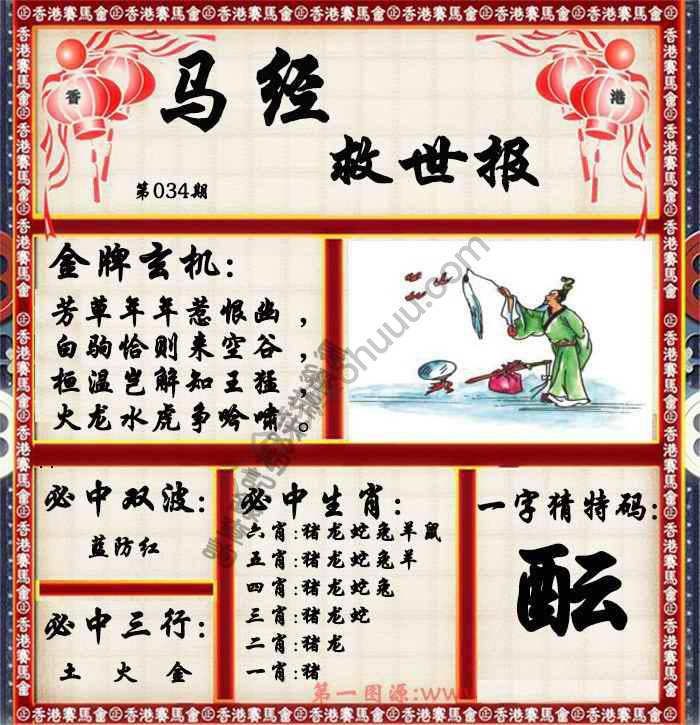 香港賽馬會
香 港
马经
救世报
第034期
金牌玄机:
芳草年年惹恨幽，
白驹恰则来空谷，
桓温岂解知王猛，
火龙水虎争吟啸。
必中双波:
蓝防红
必中三行:
土 火 金
必中生肖:
六肖:猪龙蛇兔羊鼠
五肖:猪龙蛇兔羊
四肖:猪龙蛇兔
三肖:猪龙蛇
二肖:猪龙
一肖:猪
一字猜特码:
酝
第一图源:www